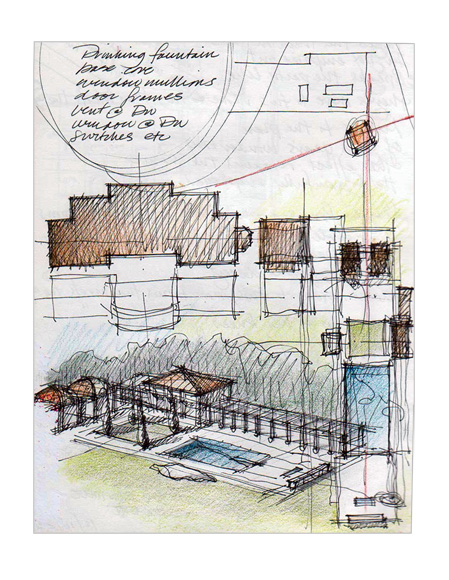 Drinking fountain
base
window mullions
door frames
vent @ DW
window @ DW
Switches etc